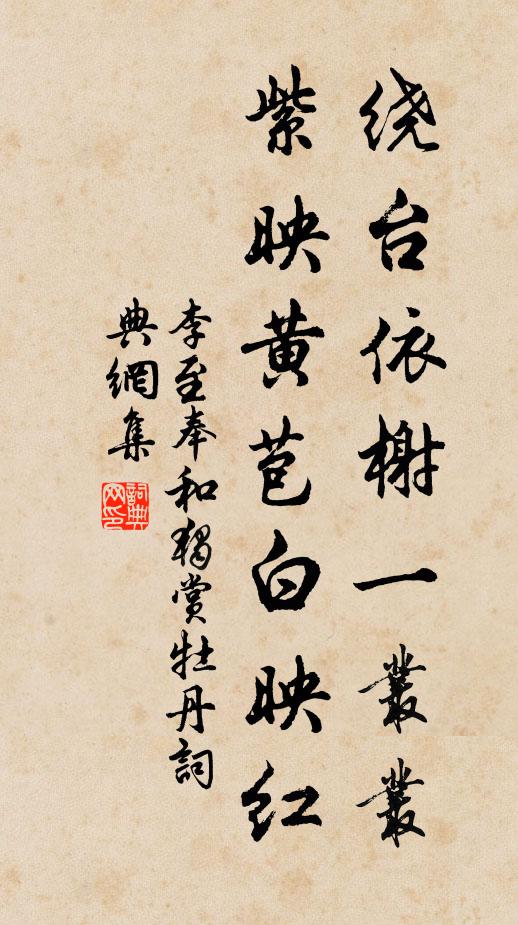 绕台依榭一叢叢
紫映黄苞白映红
李至奉和獨赏牡丹詞
典網集
詞典网印